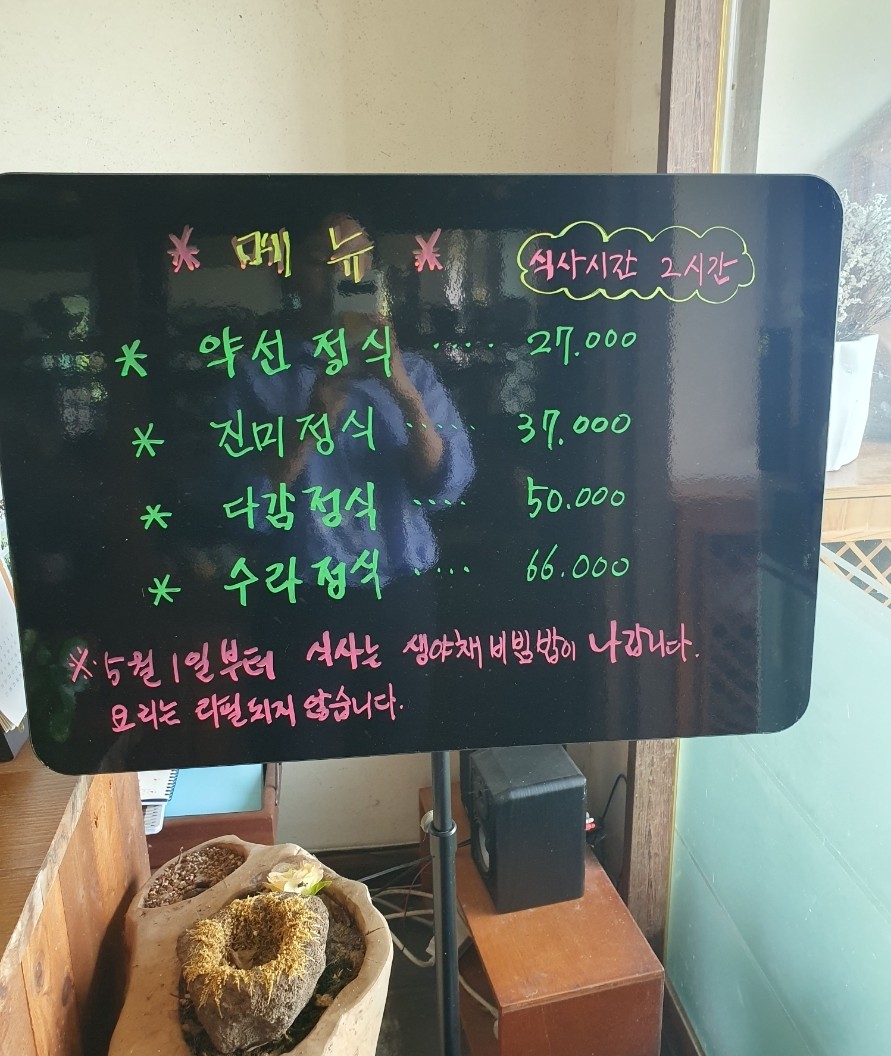 * 메뉴 * 식사시간 2시간
* 약선정식 ..... 27.000
* 진미정식 ..... 37.000
* 다감정식 .... 50.000
* 수라정식 .... 66.000
※ 5월 1일부터 식사는 생야채비빔밥이 나갑니다.
요리는 리필되지 않습니다.